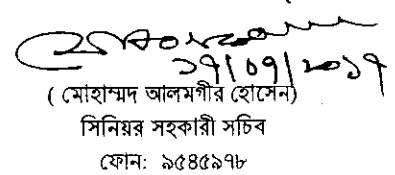 ১৭/০৭/২০১৭
( মোহাম্মদ আলমগীর হোসেন)
সিনিয়র সহকারী সচিব
ফোন: ৯৫৪৫৯৭৮